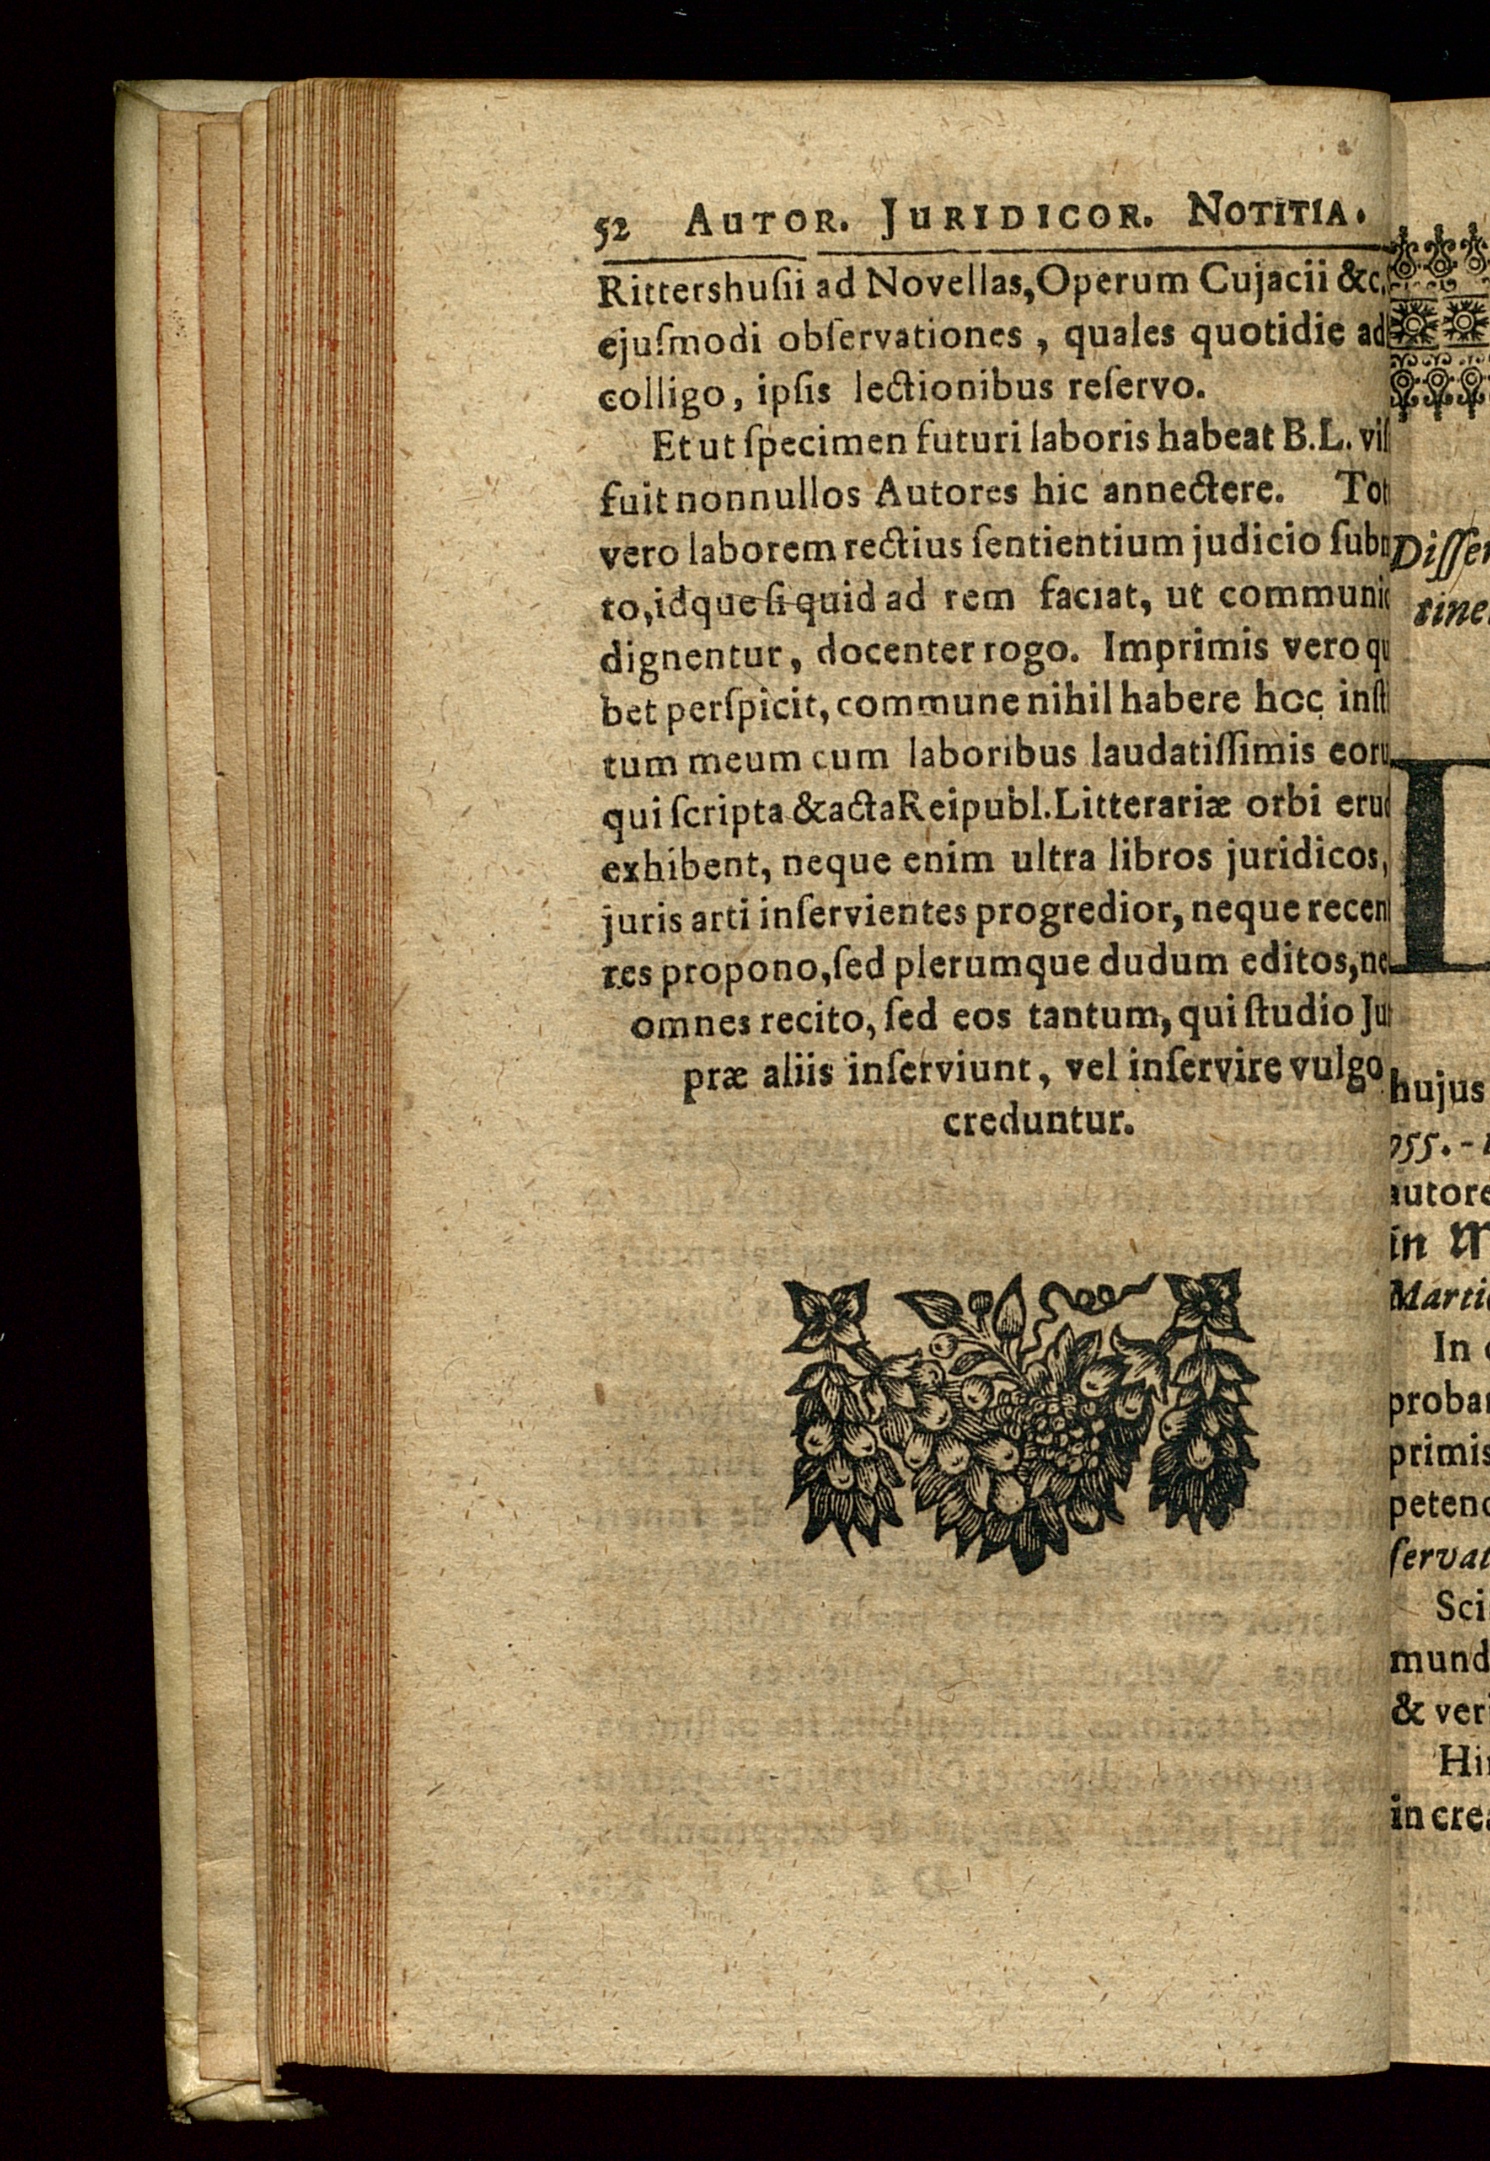 52 AUTOR. JURIDICOR. NOTITIA.
Rittershuſii ad Novellas, Operum Cujacii &c.
ejuſmodi obſervationes, quales quotidie ad
colligo, ipſis lectionibus reſervo.
Et ut ſpecimen futuri laboris habeat B. L. viſ
fuit nonnullos Autores hic annectere. Tot
vero laborem rectius ſentientium judicio ſub
to, idque ſi quid ad rem faciat, ut communi
dignentur, docenter rogo. Imprimis vero qu
bet perſpicit, commune nihil habere hoc inſti
tum meum cum laboribus laudatiſſimis eoru
qui ſcripta & acta Reipubl. Litterariæ orbi erud
exhibent, neque enim ultra libros juridicos,
juris arti inſervientes progredior, neque recen
res propono, ſed plerumque dudum editos, ne
omnes recito, ſed eos tantum, qui ſtudio Jur
præ aliis inſerviunt, vel inſervire vulgo
creduntur.
Diſſer
tine
hujus
955. -
autore
in
Marti
In
proba
primis
petend
ſervat
Sci
mund
& ver
Hi
in crea